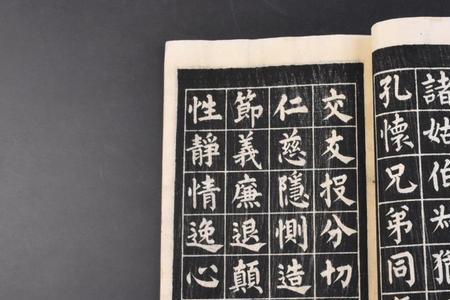 諸姑伯叔猶
孔懷兄弟同
交友投分切
仁慈隱惻造
節義廉退顛
性靜情逸心